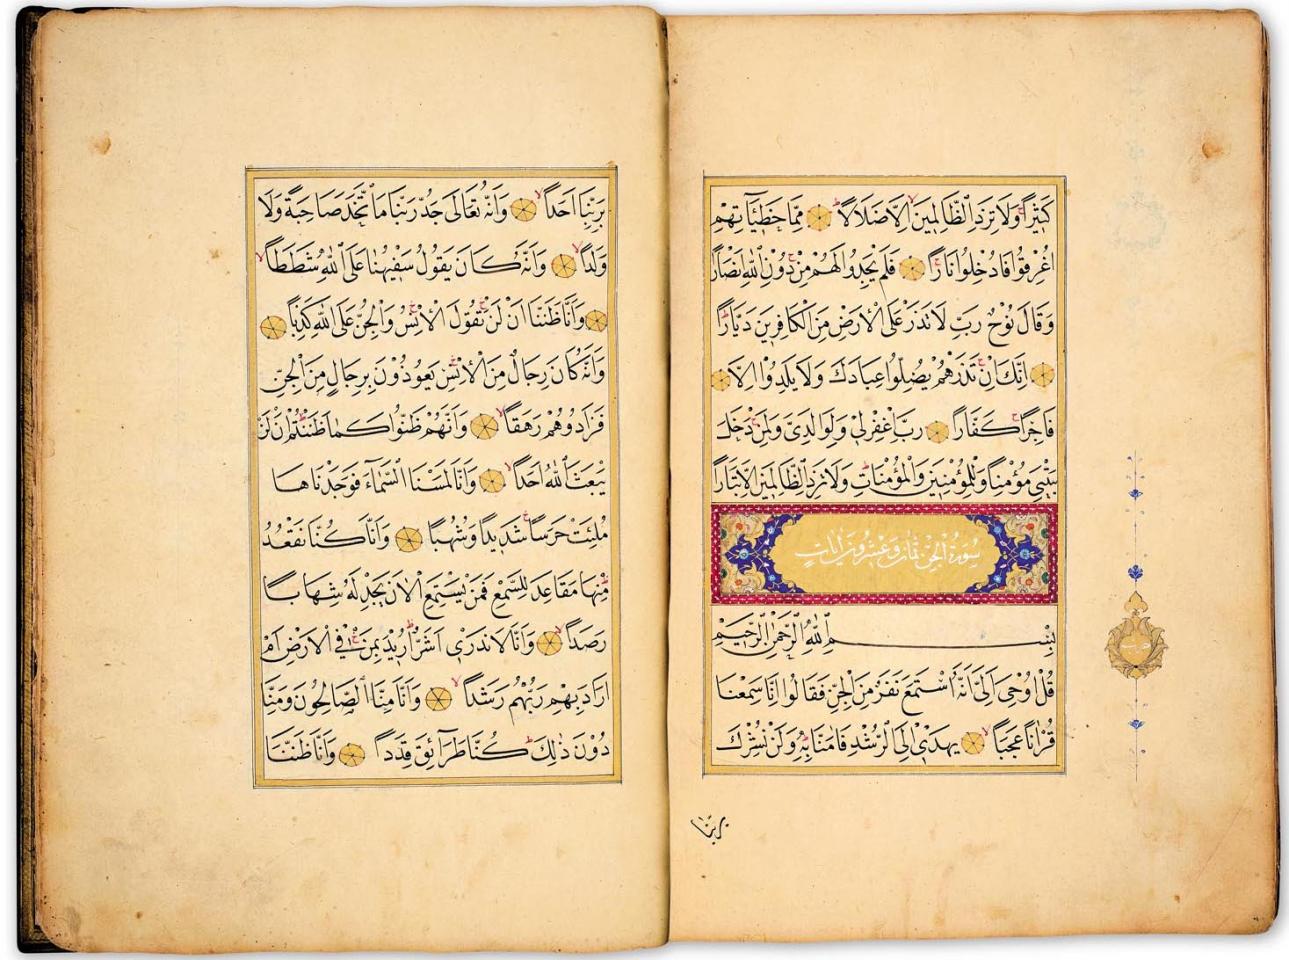 كَثِيرًا وَلَا تَزِدِ الظَّالِمِينَ اِلَّا ضَلَالًا مِمَّا خَطِيئَاتِهِمْ
اُغْرِقُوا فَاُدْخِلُوا نَارًا فَلَمْ يَجِدُوا لَهُمْ مِنْ دُونِ اللّٰهِ اَنْصَارًا
وَقَالَ نُوحٌ رَبِّ لَا تَذَرْ عَلَى الْاَرْضِ مِنَ الْكَافِرِينَ دَيَّارًا
اِنَّكَ اِنْ تَذَرْهُمْ يُضِلُّوا عِبَادَكَ وَلَا يَلِدُوا اِلَّا
فَاجِرًا كَفَّارًا رَبِّ اغْفِرْ لِي وَلِوَالِدَيَّ وَلِمَنْ دَخَلَ
بَيْتِيَ مُؤْمِنًا وَلِلْمُؤْمِنِينَ وَالْمُؤْمِنَاتِ وَلَا تَزِدِ الظَّالِمِينَ اِلَّا تَبَارًا
سُورَةُ الْجِنِّ ثَمَانٍ وَعِشْرُونَ اٰيَاتٍ
بِسْمِ اللّٰهِ الرَّحْمٰنِ الرَّحِيمِ
قُلْ اُوحِيَ اِلَيَّ اَنَّهُ اسْتَمَعَ نَفَرٌ مِنَ الْجِنِّ فَقَالُوا اِنَّا سَمِعْنَا
قُرْاٰنًا عَجَبًا يَهْدِي اِلَى الرُّشْدِ فَاٰمَنَّا بِهِ وَلَنْ نُشْرِكَ
بِرَبِّنَا
بِرَبِّنَا اَحَدًا وَاَنَّهُ تَعَالٰى جَدُّ رَبِّنَا مَا اتَّخَذَ صَاحِبَةً وَلَا
وَلَدًا وَاَنَّهُ كَانَ يَقُولُ سَفِيهُنَا عَلَى اللّٰهِ شَطَطًا
وَاَنَّا ظَنَنَّا اَنْ لَنْ تَقُولَ الْاِنْسُ وَالْجِنُّ عَلَى اللّٰهِ كَذِبًا
وَاَنَّهُ كَانَ رِجَالٌ مِنَ الْاِنْسِ يَعُوذُونَ بِرِجَالٍ مِنَ الْجِنِّ
فَزَادُوهُمْ رَهَقًا وَاَنَّهُمْ ظَنُّوا كَمَا ظَنَنْتُمْ اَنْ لَنْ
يَبْعَثَ اللّٰهُ اَحَدًا وَاَنَّا لَمَسْنَا السَّمَاءَ فَوَجَدْنَاهَا
مُلِئَتْ حَرَسًا شَدِيدًا وَشُهُبًا وَاَنَّا كُنَّا نَقْعُدُ
مِنْهَا مَقَاعِدَ لِلسَّمْعِ فَمَنْ يَسْتَمِعِ الْاٰنَ يَجِدْ لَهُ شِهَابًا
رَصَدًا وَاَنَّا لَا نَدْرِي اَشَرٌّ اُرِيدَ بِمَنْ فِي الْاَرْضِ اَمْ
اَرَادَ بِهِمْ رَبُّهُمْ رَشَدًا وَاَنَّا مِنَّا الصَّالِحُونَ وَمِنَّا
دُونَ ذٰلِكَ كُنَّا طَرَائِقَ قِدَدًا وَاَنَّا ظَنَنَّا